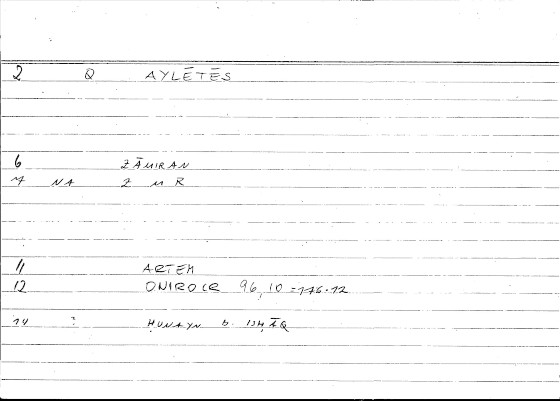 2 Q AYLĒTĒS
6 ZĀMIRAN
7 NA Z M R
11 ARTEM
12 ONIROCR 96,10 = 176.12
14 : ḤUNAYN b. ISḤĀQ